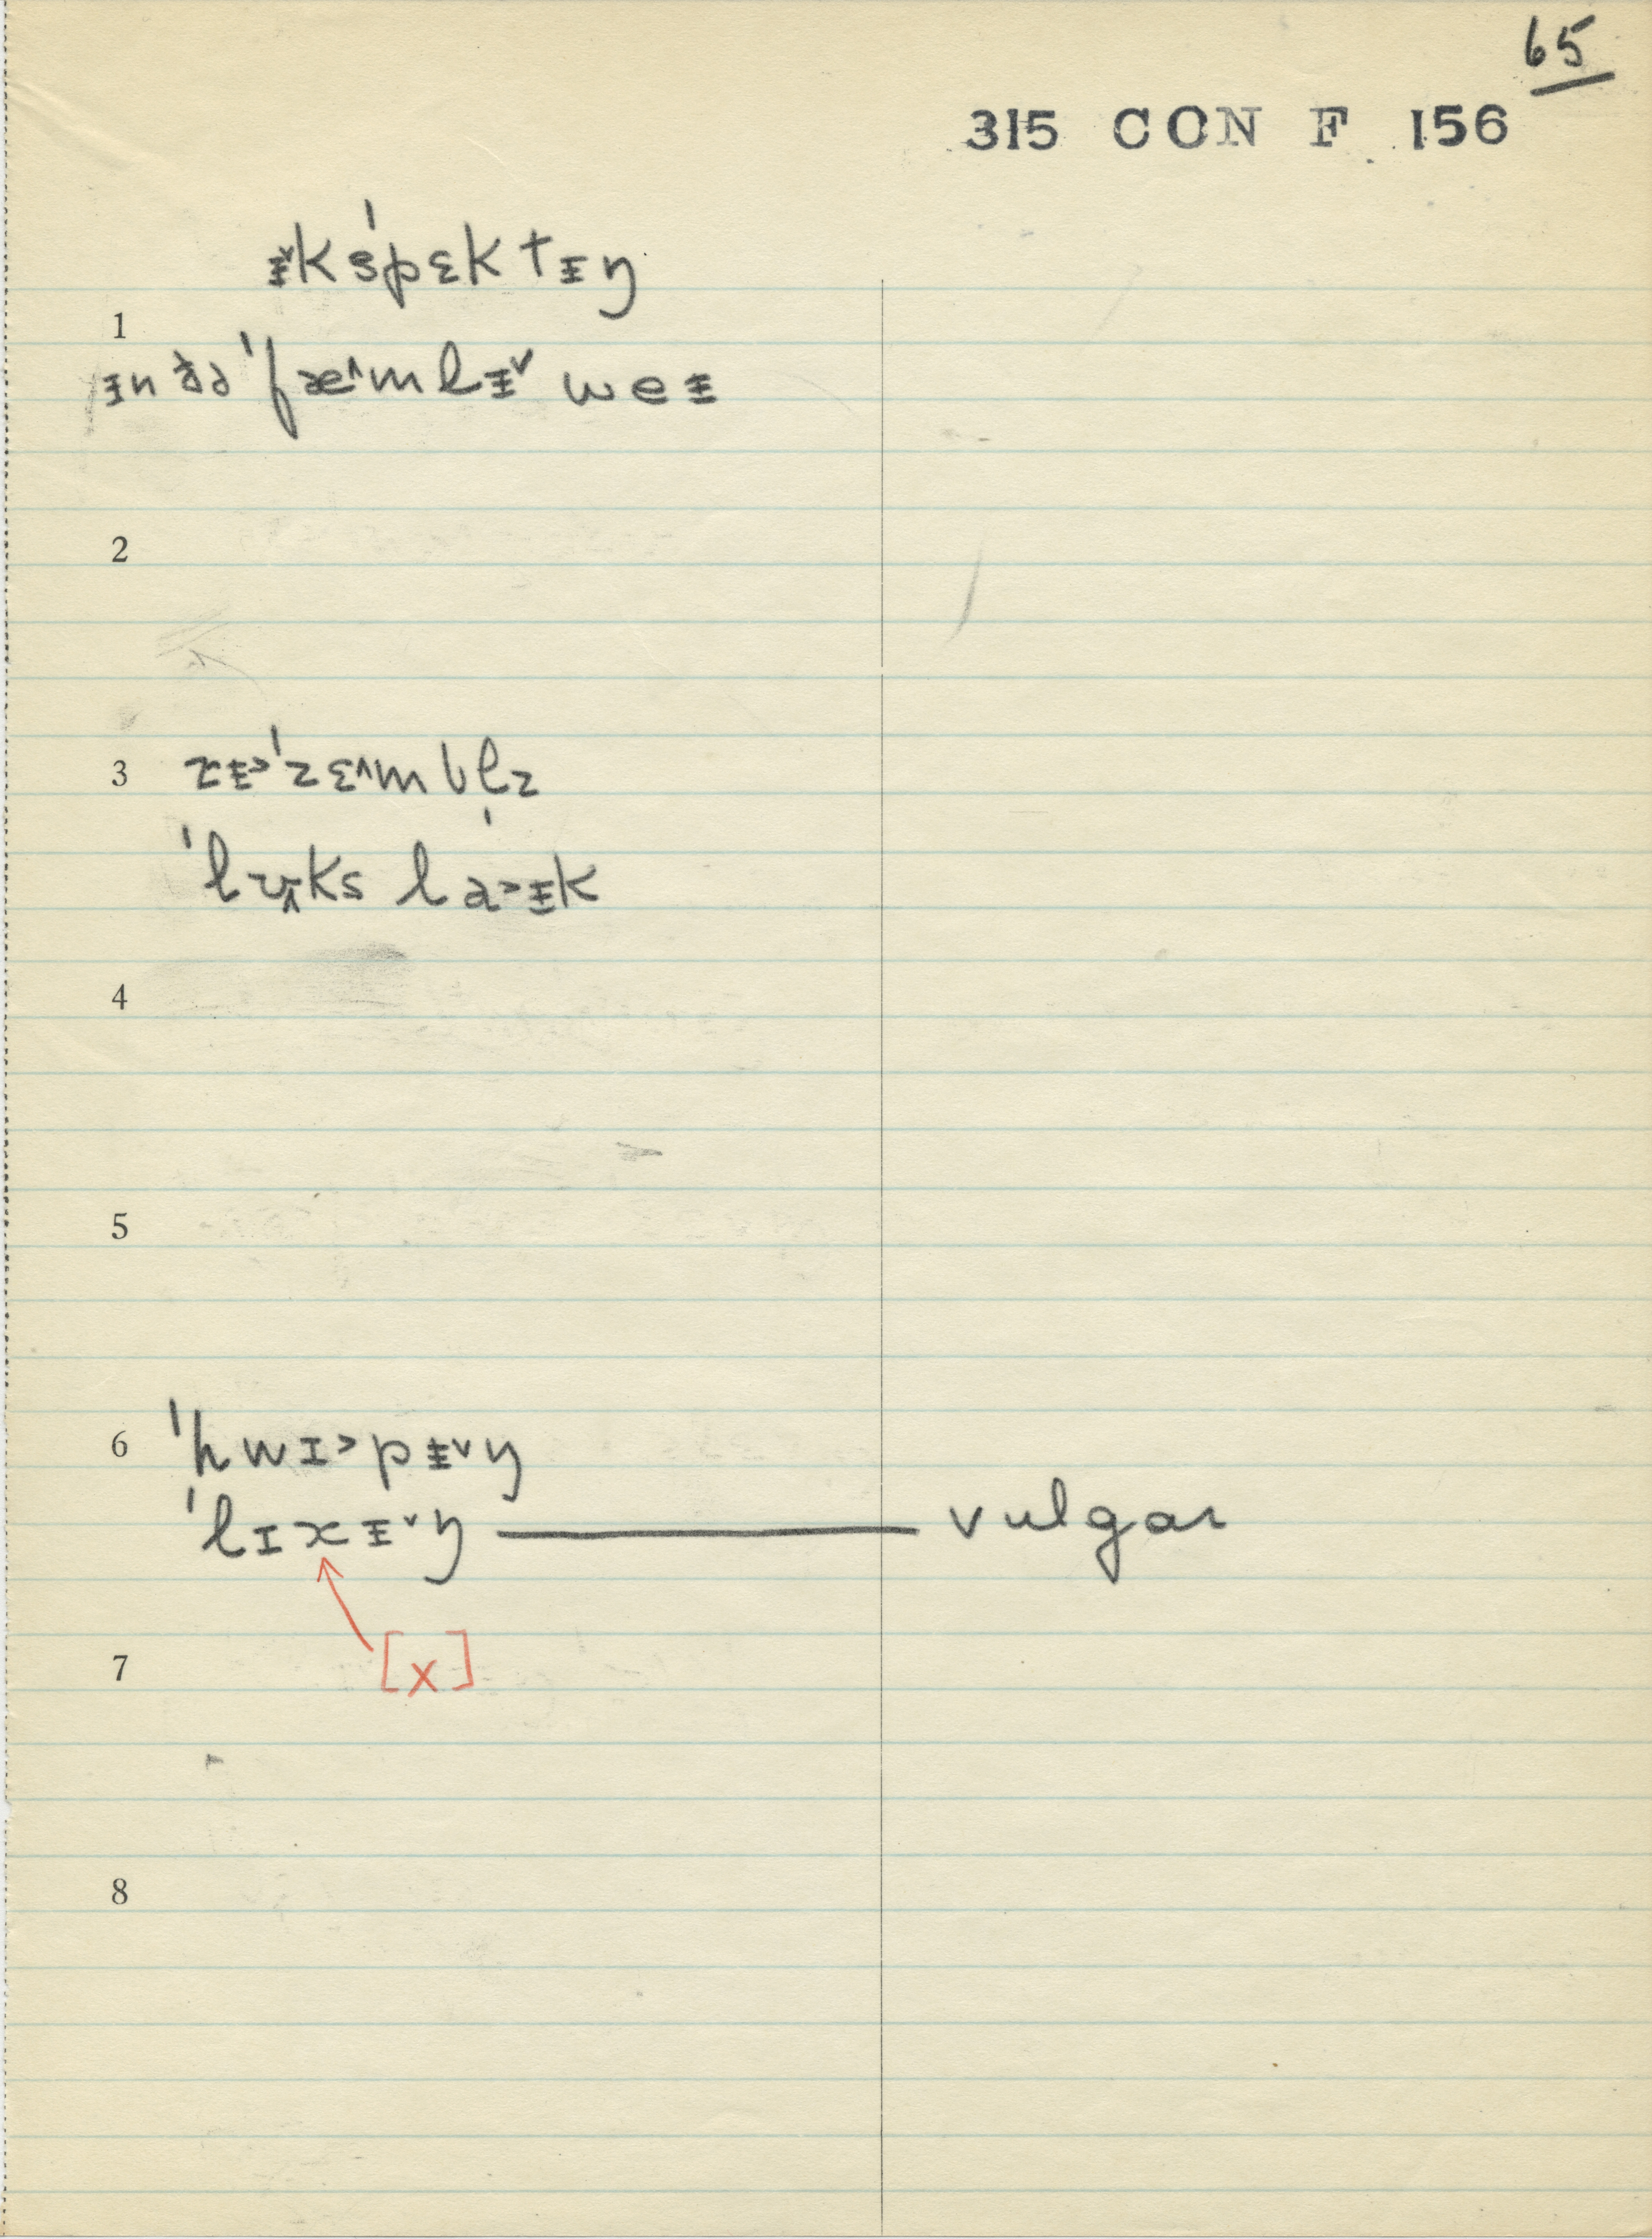 65
315 CON F 156
ᵻ˅kˈspɛktᵻŋ
1
ᵻn ðə ˈfæ˄mlᵻ˅ weᵻ
2
3 rᵻ˃ˈzɛ˄mbl̩z
ˈlʊ˄ks la˃ᵻk
4
5
6 ˈhwɪ˃pᵻ˅ŋ
ˈlɪxᵻ˅ŋ — vulgar
[x]
7
8